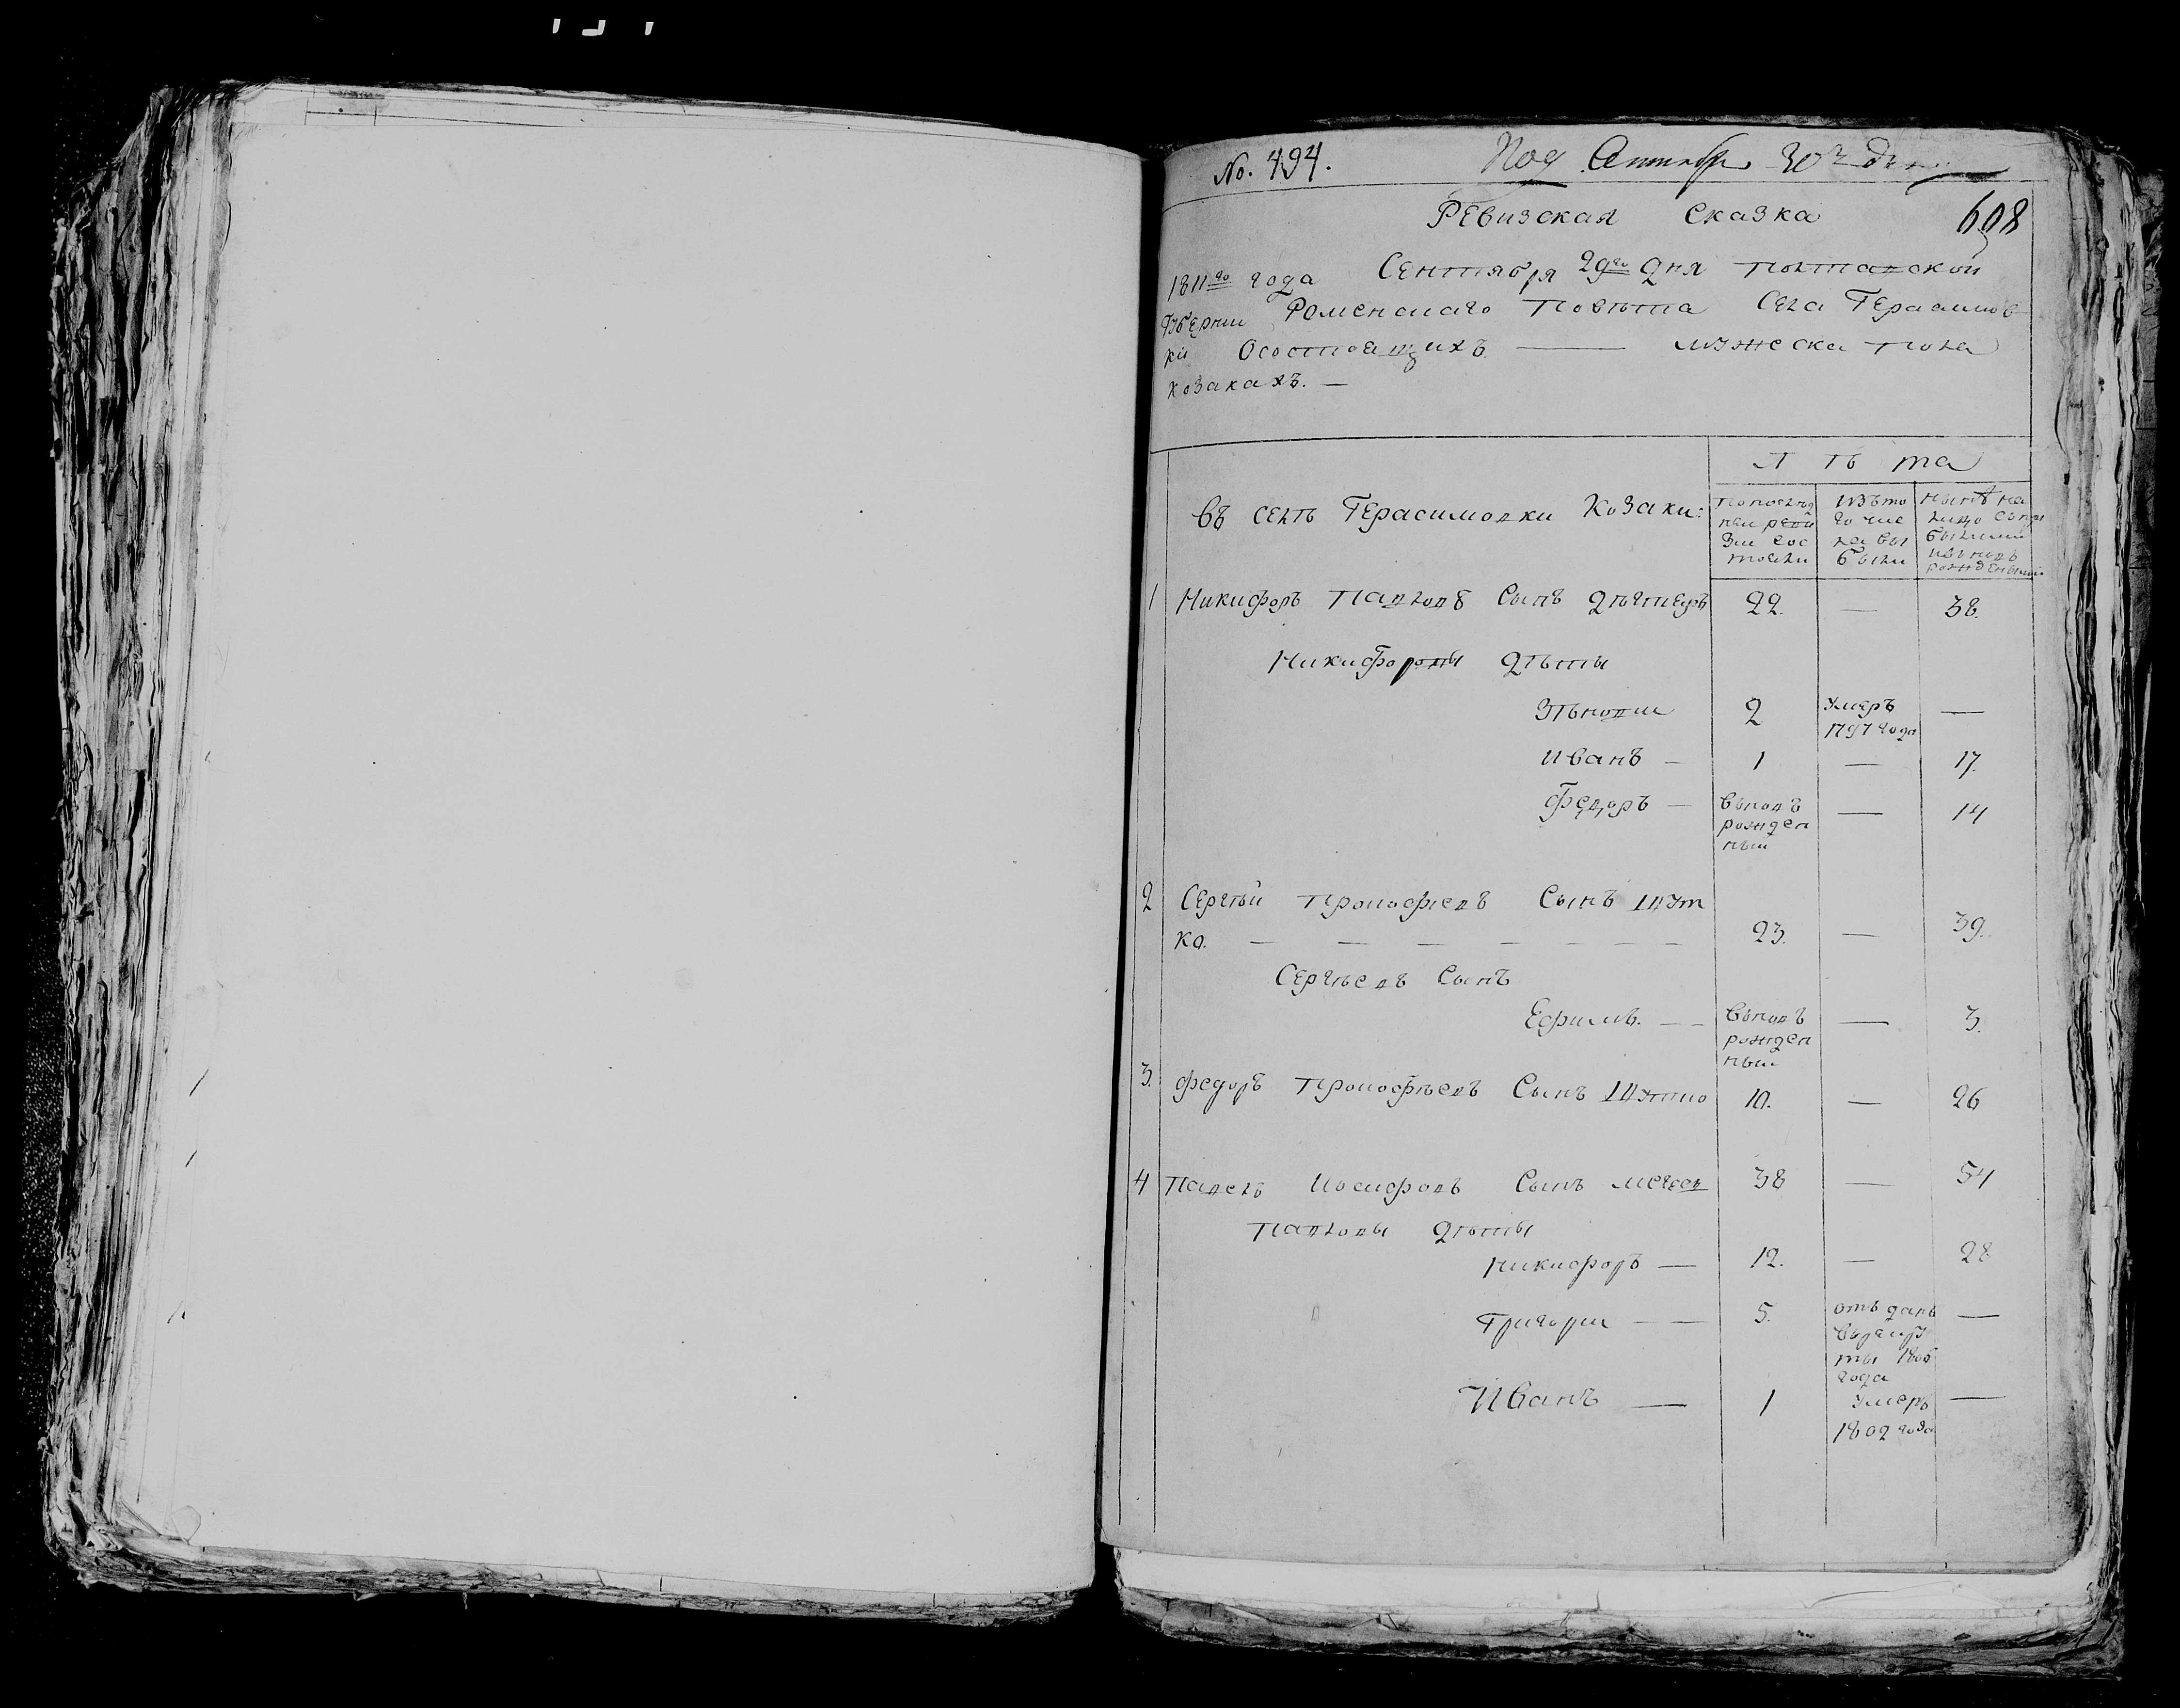 No. 494.
Под Сентября 30го дня
608
Ревизская Сказка
1811го года Сентября 29го дня Полтавской
Губернии Роменскаго Повѣта Села Герасимов
ки Осостоящихъ — мужеска пола
козакахъ. —
Лѣта
Въ селѣ Герасимовки Козаки:
попослѣд
ней реви
зии сос
тояли
изъто
го чис
ла вы
были
нынѣ на
лицо сьпри
былими
ивьновь
рожденными
1 Никифоръ Павловъ Сынъ 22. — 38.
Никифоровы дѣты
Зѣновии 2 умеръ —
1797 года
Иванъ — 1 — 17.
Федоръ — вьновь — 14
рожден
ный
2 Сергѣй Прокофїевъ Сынъ Шут
ко. — — — — — — — 23. — 39.
Сергѣевъ Сынъ
Ефимъ. — — вьновь — 3.
рожден
ный
3. Федоръ Прокофѣевъ Сынъ Шутко 10. — 26
4 Павелъ Иосифовъ Сынъ 38 — 54
Павловы дѣты
Никифоръ — 12. — 28
Григории — — 5. отъданъ —
врекру
ты 1805
года
Иванъ — 1 умеръ —
1802 года